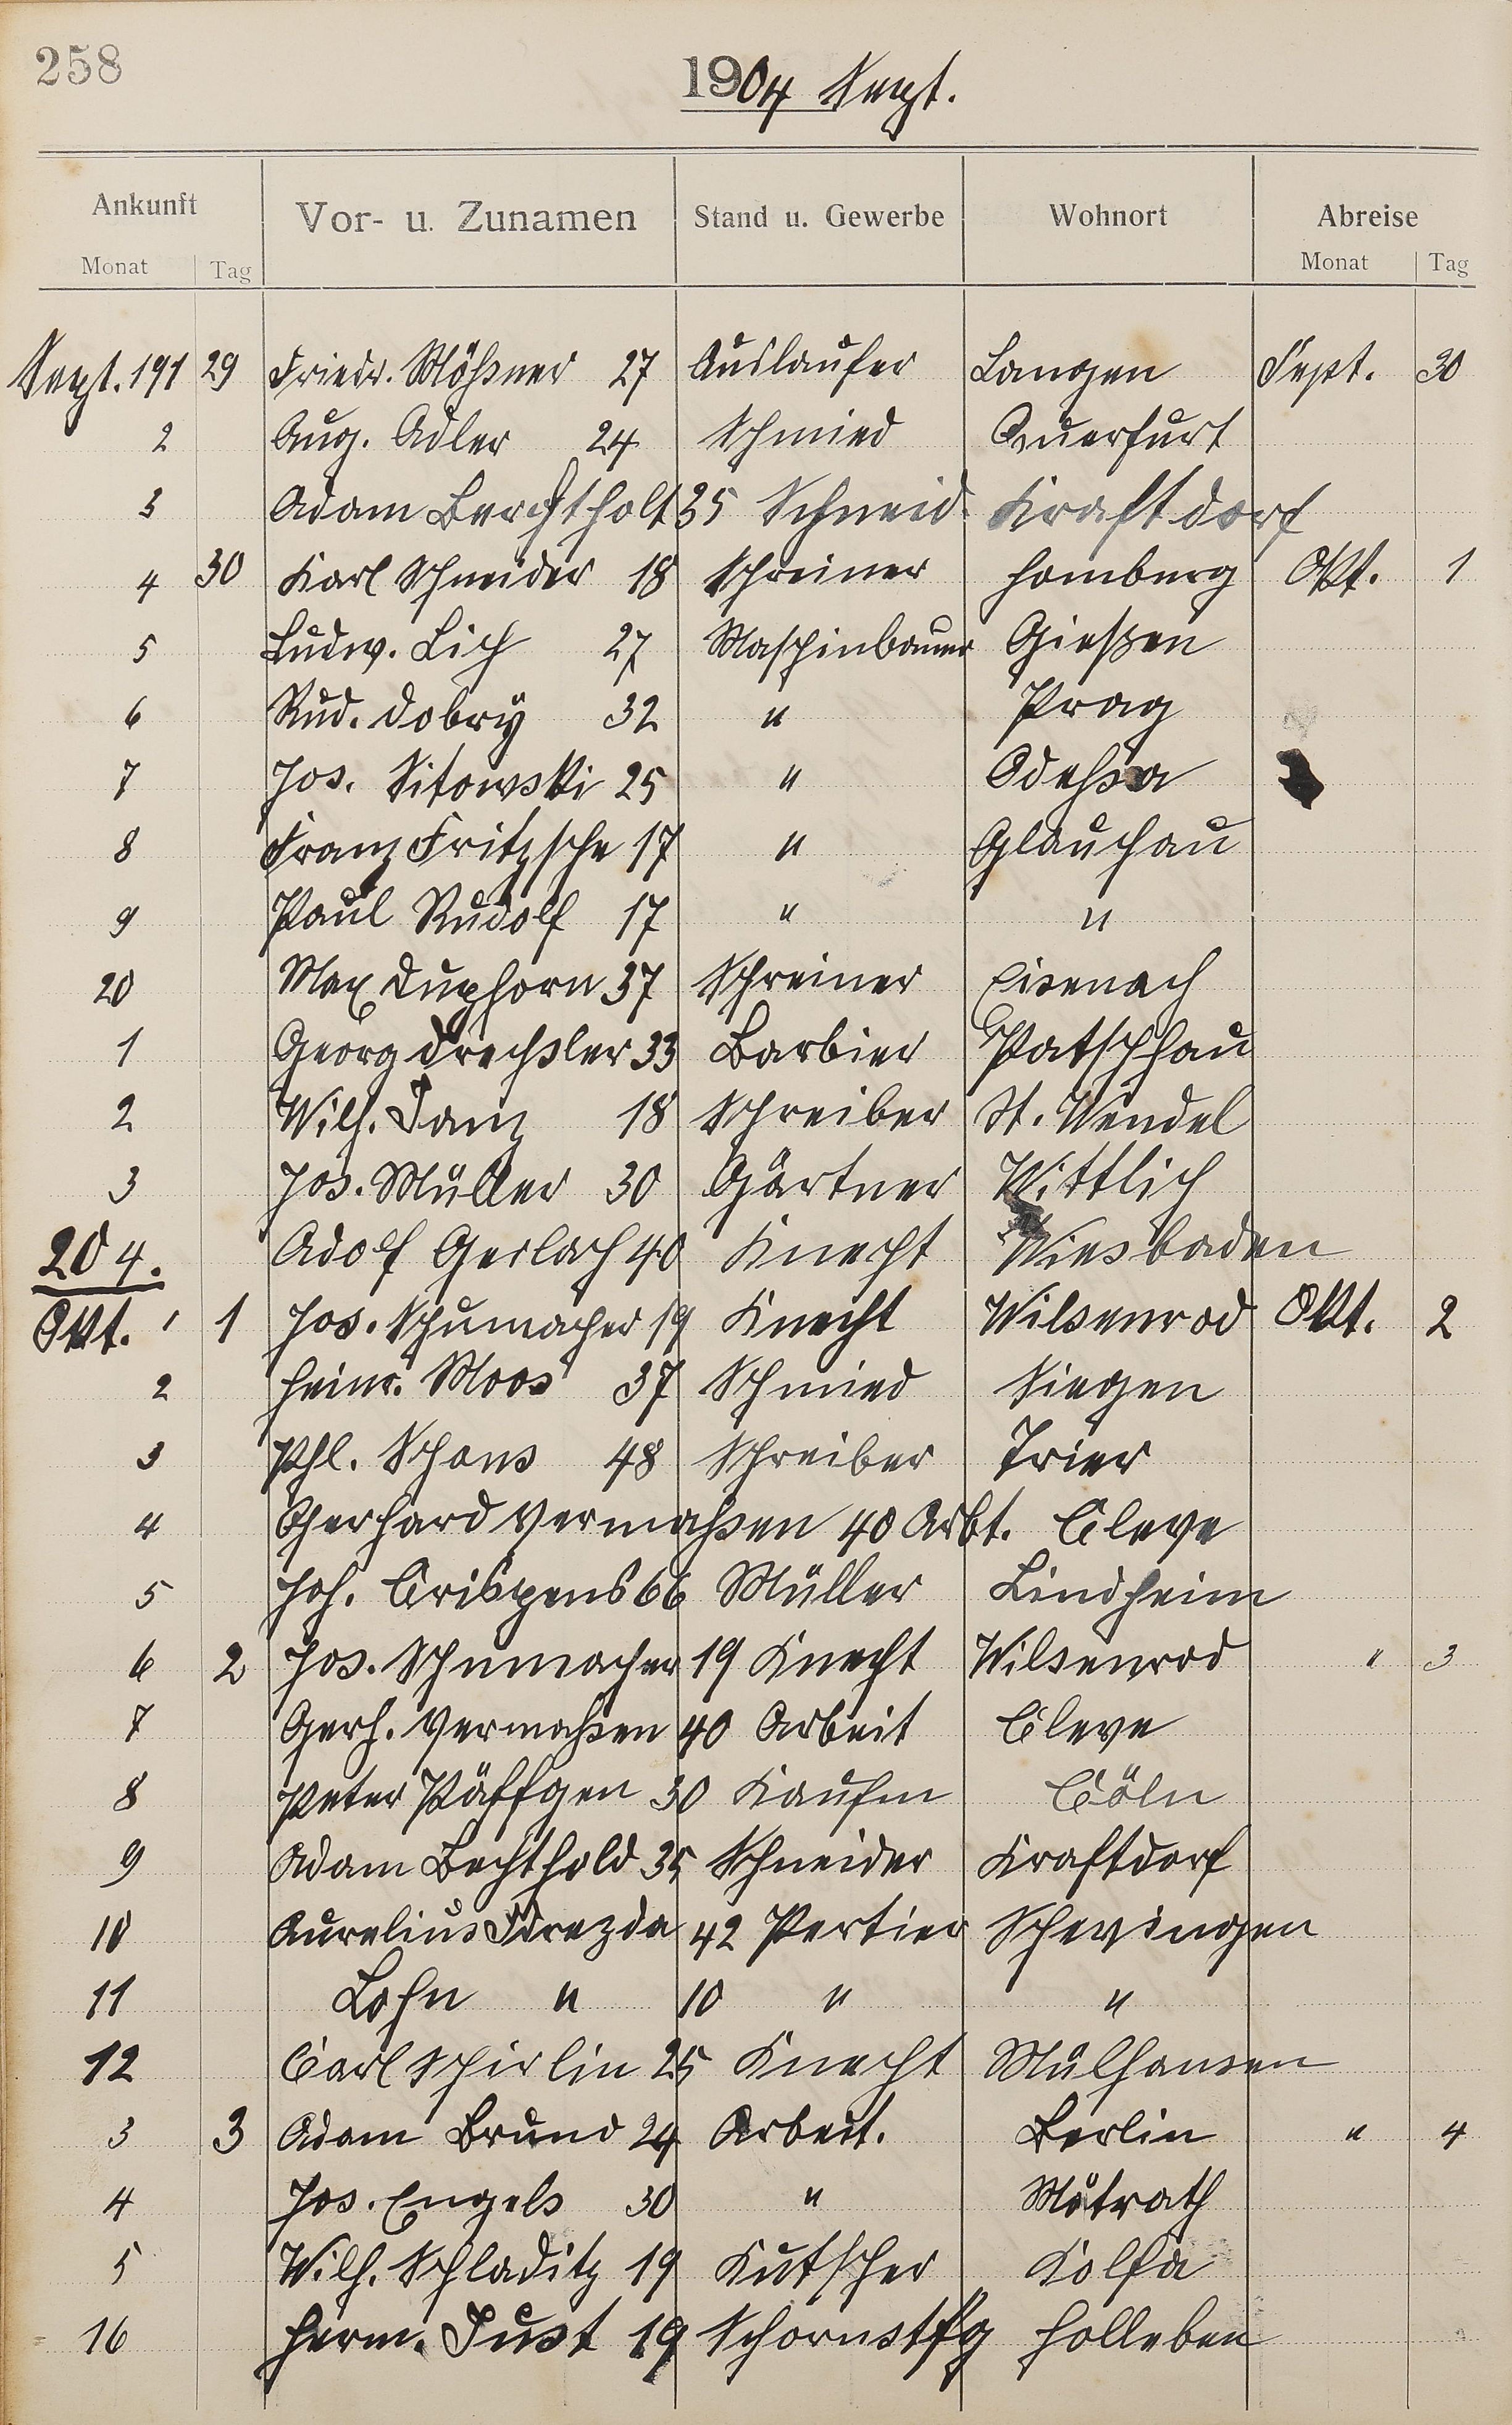 258
1904 Sept.
Ankunft Vor- u. Zunamen Stand u. Gewerbe Wohnort Abreise
Monat Tag Monat Tag
Sept. 191 29 Friedr. Mößner 27 Auslaufer Langen Sept. 30
2 Aug. Adler 24 Schmied Querfurt
3 Adam Berchtholt 35 Schneid. Kraftdorf
4 30 Karl Schneider 18 Schreiner Homburg Okt. 1
5 Ludw. Lich 27 Maschinbauer Gießen
6 Rud. Dobry 32 " Prag
7 Jos. Sitowski 25 " Odeßa
8 Franz Fritzsche 17 " Glauchau
9 Paul Rudolf 17 " "
20 Max Duphorn 37 Schreiner Eisenach
1 Georg Drechsler 33 Barbier Patschkau
2 Wilh. Janz 18 Schreiber St. Wendel
3 Jos. Müller 30 Gärtner Wittlich
204. Adolf Gerlach 40 Knecht Wiesbaden
Okt. 1 1 Jos. Schumacher 19 Knecht Wilsenrod Okt. 2
2 Heinr. Moos 37 Schmied Siegen
3 Phl. Schons 48 Schreiber Trier
4 Gerhard Vermaßen 40 Arbt. Cleve
5 Joh. Crispens 66 Müller Lindheim
6 2 Jos. Schumacher 19 Knecht Wilsenrod " 3
7 Gerh. Vermaßen 40 Arbeit Cleve
8 Peter Päffgen 30 Kaufm Cöln
9 Adam Bechthold 35 Schneider Kraftdorf
10 Aurelius 42 Portier
11 Sohn " 10 " "
12 Carl Schirlin 25 Knecht Mülhausen
3 3 Adam Brund 24 Arbeit. Berlin " 4
4 Jos. Engels 30 " Mötrath
5 Wilh. Schladitz 19 Kutscher Kolsa
16 Herm. Just 19 Schornstfg Holleben